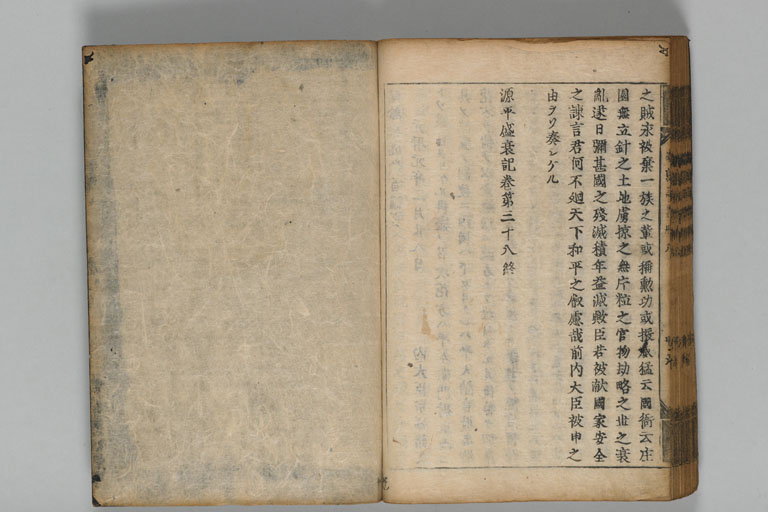 之賊永被棄一族之輩或稱勲功或授武猛云國衙云庄
園無立針之土地虜掠之無片粒之官物劫略之世之衰
亂逐日彌甚國之殘滅積年益減敗臣若被献國家安全
之諫言君何不廻天下和平之叡慮哉前内大臣被申之
由ヲソ奏シケル
源平盛衰記卷第三十八終